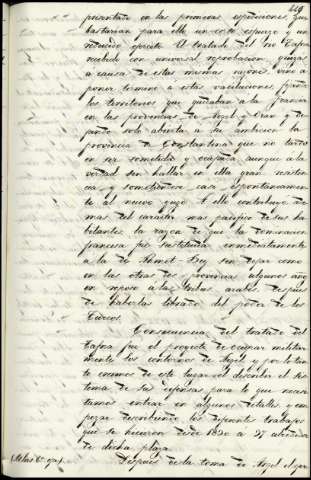 449
presentado en las primeras espediciones, que
bastarian para ella un corto esfuerzo y un
reducido ejercito. El tratado del rio Tafna
recibido con universal reprobacion, quizas
a causa de estas mismas razones, vino a
poner termino a estas vacilaciones, fijando
los territorios que quedaban a la Francia
en las provincias de Argel y Oran y de-
jando solo abierta a su ambicion la
provincia de Constantina que no tardo
en ser sometida y ocupada, aunque a la
verdad sin hallar en ella gran resisten-
cia y sometiendose casi espontaneamente
al nuevo yugo. A ello contribuyo ade-
mas del caracter mas pacifico de sus ha-
bitantes, la razon de que la dominacion
francesa fue sustituida inmediatamente
a la de Ahmet Bey sin dejar como
en las otras dos provincias algunos años
en reposo a las tribus arabes, despues
de haberlas librado del poder de los
Turcos.
Consecuencia del tratado del
Tafna fue el proyecto de ocupar militar-
mente los contornos de Argel y por lo tan-
to creemos de este lugar el describir el sis-
tema de sus defensas para lo que necesi-
tamos entrar en algunos detalles, em-
pezar describiendo los diferentes trabajos
que se hicieron desde 1830 a 37 alrededor
de dicha plaza.
(Atlas 6ª)
Despues de la toma de Argel el